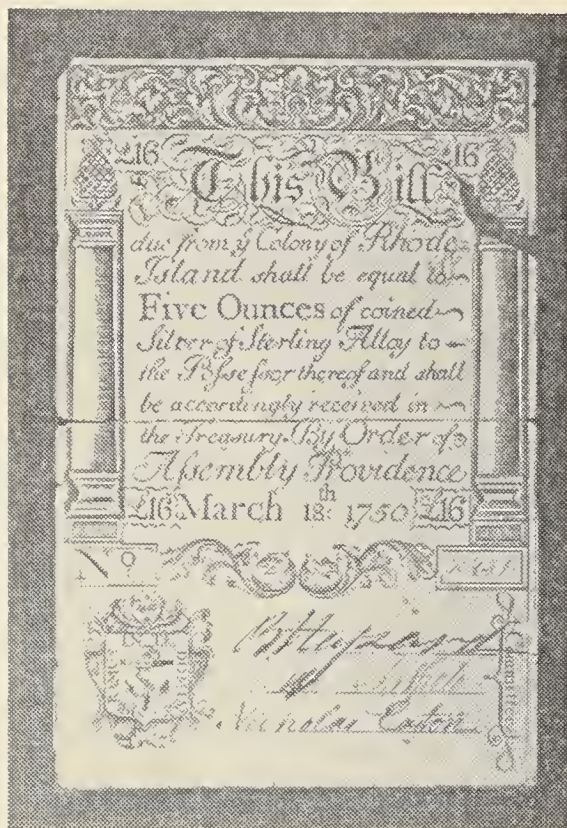 £16 This Bill £16
due from yͤ Colony of Rhode
Island shall be equal to
Five Ounces of coined
Silver of Sterling Alloy to
the Possessor thereof and shall
be accordingly received in
the Treasury. By Order of
Assembly Providence
£16 March 18th: 1750 £16
No
Committee
Nicholas Easton